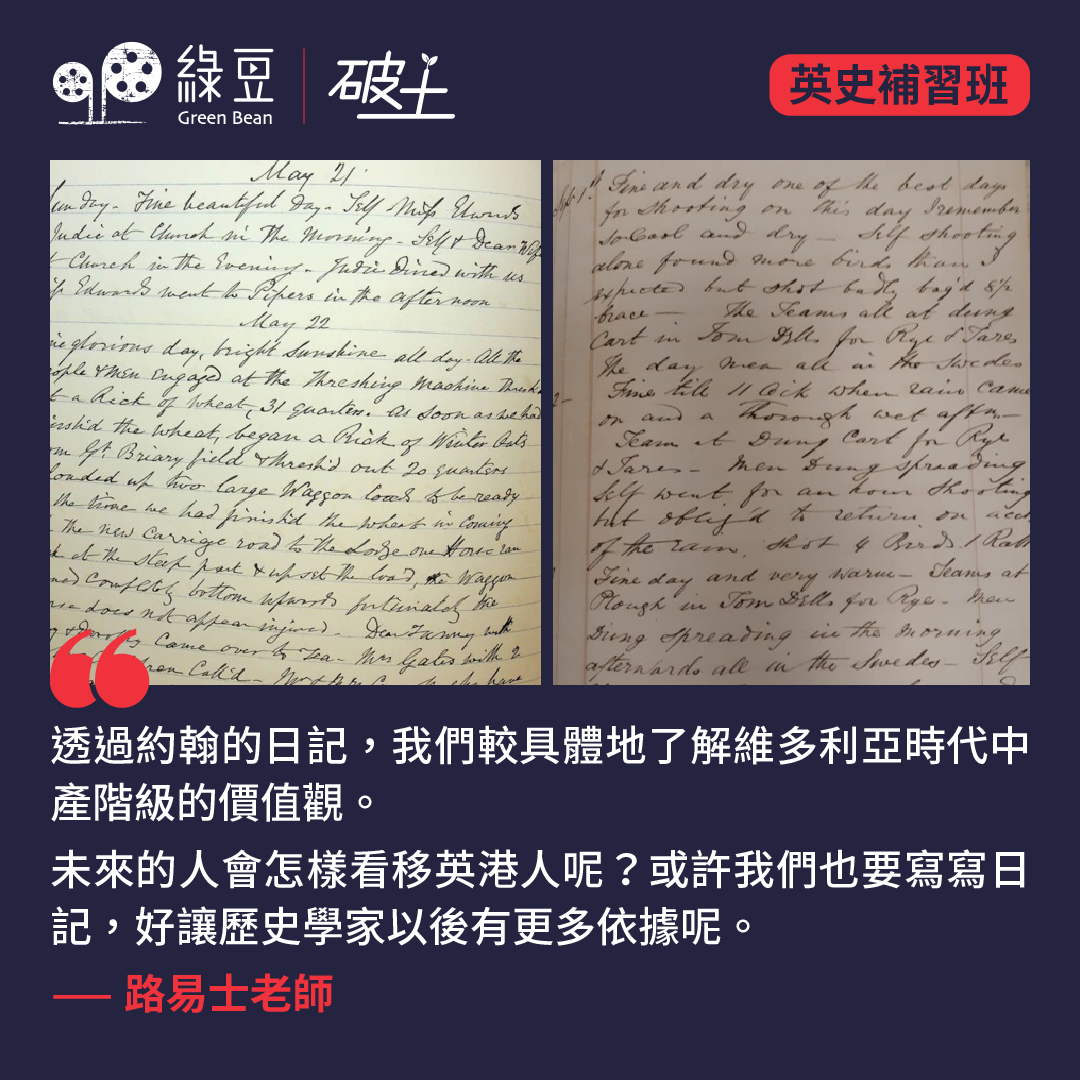 綠豆
Green Bean
破土
英史補習班
May 21
Sunday - Fine beautiful Day - Self Miss Edwards
Judie at Church in The Morning - Self & Dear Wife
Church in the Evening - Judie Dined with us
Edwards went to Pipers in the afternoon
May 22
glorious day, bright Sunshine all day - All the
& Men Engaged at the Threshing Machine
a Rick of wheat, 31 quarters. As soon as we had
the wheat, began a Rick of Winter Oats
Gt. Briary field & thresh'd out 20 quarters
up two large Waggon loads to be ready
the time we had finish'd the wheat in Coming
the new Carriage road to the Lodge one Horse ran
at the steep part & upset the load, the Waggon
Completely bottom upwards fortunately the
does not appear injured - Dear Fanny with
Came over to Tea - Mrs Gates with 2
Call'd -
have
Fine and dry one of the best days
for shooting on this day I remember
so Cool and dry - Self shooting
alone found more birds than I
expected but shot badly bag'd 8½
brace - The Teams all at dung
Cart in Tom Dells for Rye & Tares
The day men all in the Swedes
Fine till 11 Clck when rain came
on and a thorough wet aftn -
Team at Dung Cart for Rye
& Tares - Men Dung spreading
Self went for an hour shooting
but oblig'd to return on acct
of the rain, shot 4 Birds 1 Rabt
Fine day and very warm - Teams at
Plough in Tom Dells for Rye - Men
Dung spreading in the morning
afterwards all in the Swedes - Self
透過約翰的日記，我們較具體地了解維多利亞時代中
產階級的價值觀。
未來的人會怎樣看移英港人呢？或許我們也要寫寫日
記，好讓歷史學家以後有更多依據呢。
—— 路易士老師